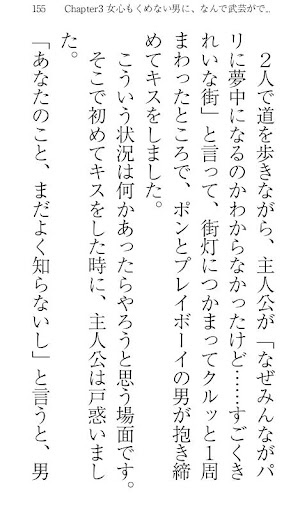 155 Chapter3 女心もくめない男に、なんで武芸がで..
２人で道を歩きながら、主人公が「なぜみんながパ
リに夢中になるのかわからなかったけど……すごくき
れいな街」と言って、街灯につかまってクルッと１周
まわったところで、ポンとプレイボーイの男が抱き締
めてキスをしました。
こういう状況は何かあったらやろうと思う場面です。
そこで初めてキスをした時に、主人公は戸惑いまし
た。
「あなたのこと、まだよく知らないし」と言うと、男